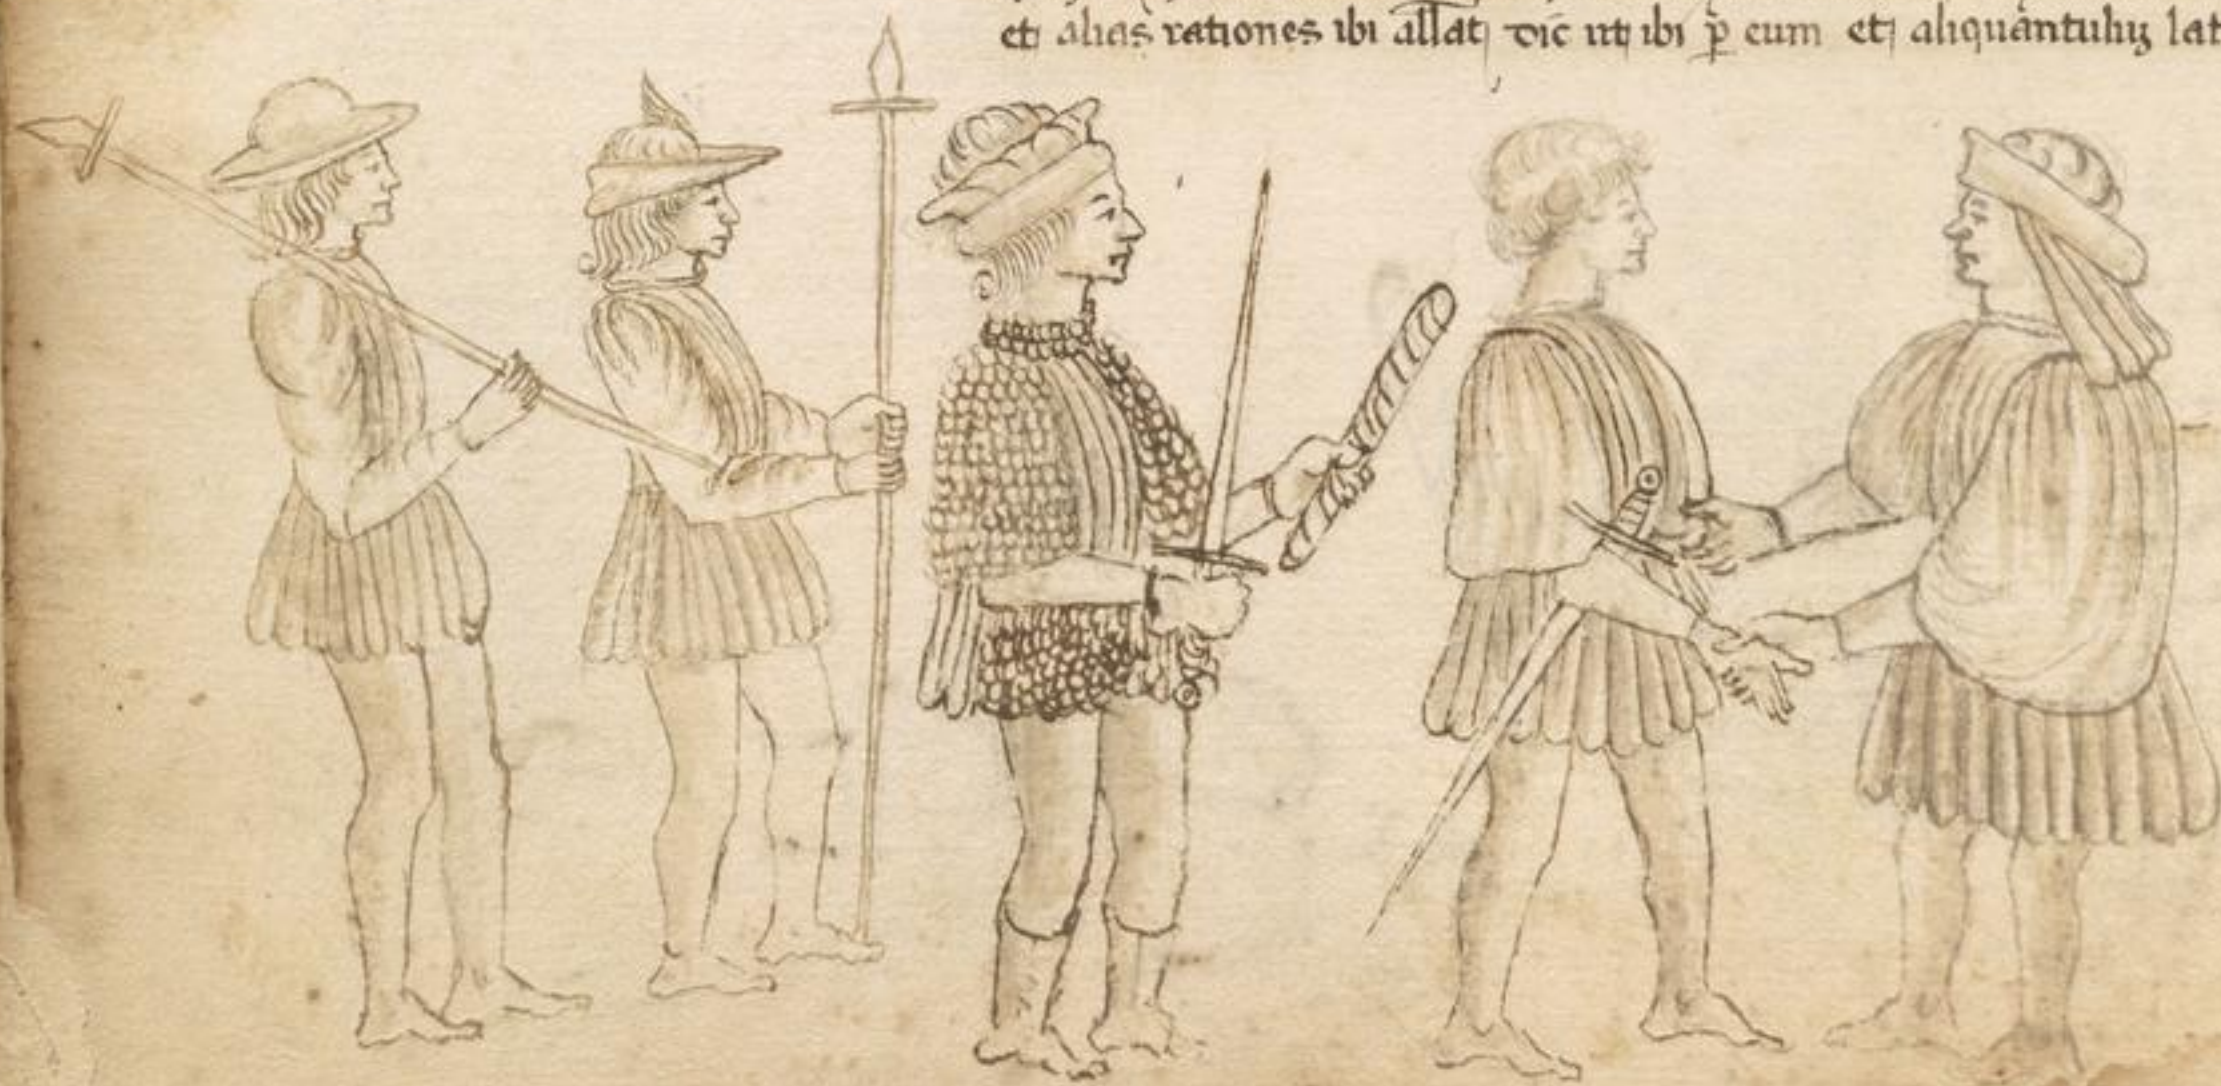 et alias rationes ibi allāt dic̄ ut ibi p̄ cum et aliquantuluꝫ lat